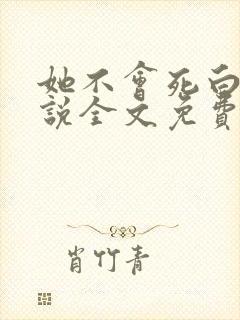 她不會死白
說全文免費
肖竹青